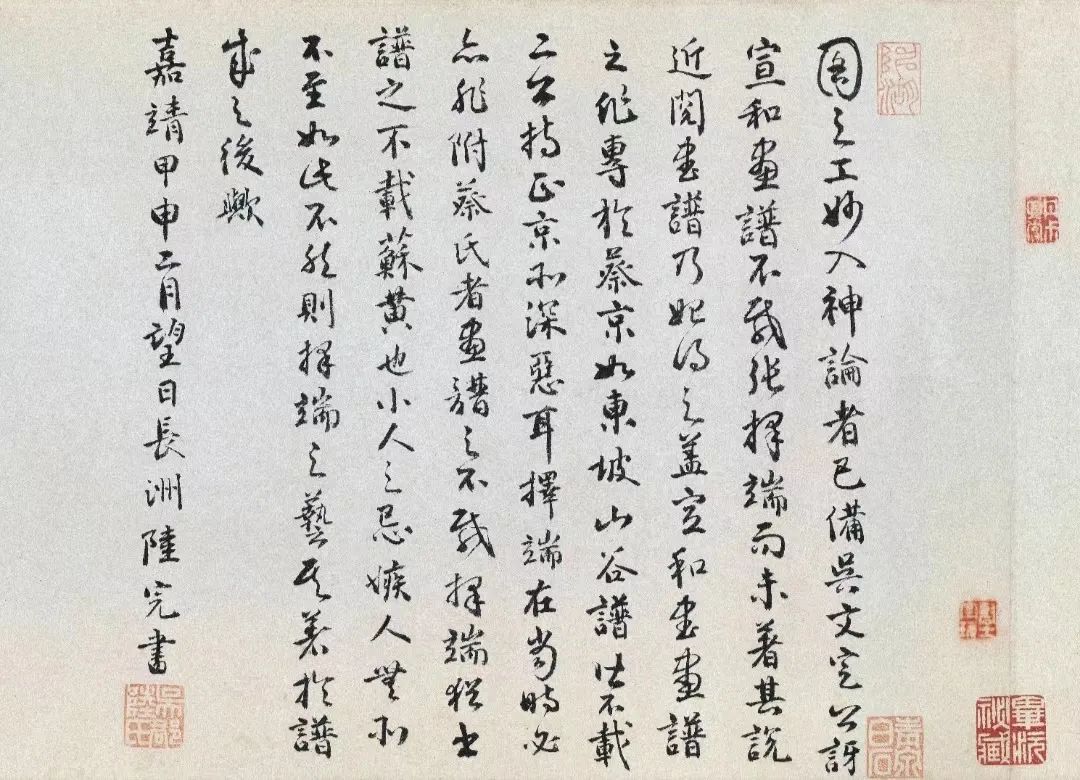 圖之工妙入神論者已備吳文定公訝
宣和畫譜不載張擇端而未著其說
近閱書譜乃始得之蓋宣和書畫譜
之作專於蔡京如東坡山谷譜皆不載
二公持正京所深惡耳擇端在當時必
亦非附蔡氏者畫譜之不載擇端猶書
譜之不載蘇黃也小人之忌嫉人無所
不至如此不然則擇端之藝其著於譜
成之後歟
嘉靖甲申二月望日長洲陸完書
畢沅祕藏